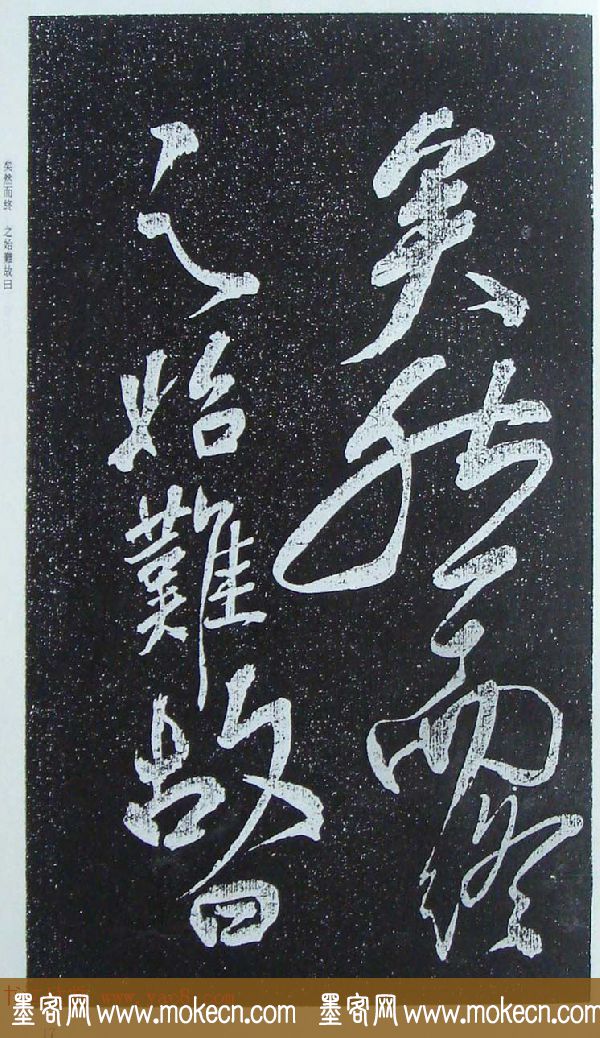 矣然而終
之始難故曰
矣然而終　之始難故曰
墨客网 www.mokecn.com 墨客网 www.mokecn.com
17